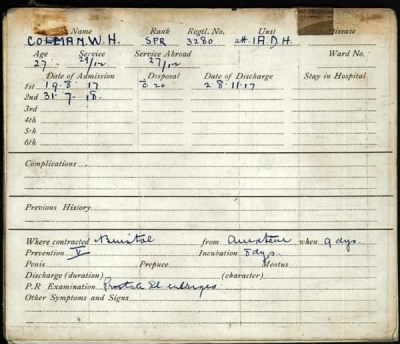 Name Rank Regtl. No. Unit Disease
COLMAN. W. H. SPR 3280 att. 1A.D.H.
Age Service Service Abroad Ward No.
27 27/12
Date of Admission Disposal Date of Discharge Stay in Hospital
1st 19.8.17 28.11.17
2nd 31.7.18.
3rd
4th
5th
6th
Complications
Previous History
Where contracted from when 9 dys.
Prevention V Incubation 8 dys.
Penis Prepuce Meatus
Discharge (duration) (character)
P.R Examination
Other Symptoms and Signs